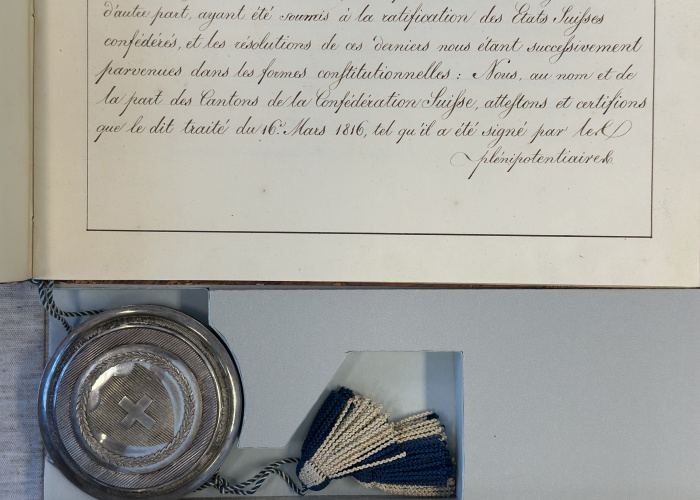 d'autre part, ayant été soumis à la ratification des Etats Suisses
confédérés, et les résolutions de ces derniers nous étant successivement
parvenues dans les formes constitutionnelles : Nous, au nom et de
la part des Cantons de la Confédération Suisse, attestons et certifions
que le dit traité du 16.e Mars 1816, tel qu'il a été signé par les
plénipotentiaires